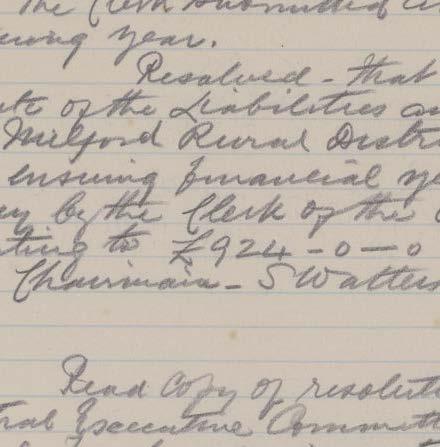 The Clerk submitted
year.
Resolved - that
of the Liabilities
Milford Rural Distri
ensuing financial ye
by the Clerk of the
ting to £924-0-0
Chairman - S Watters
Read Copy of resoluti
tral Executive Committ